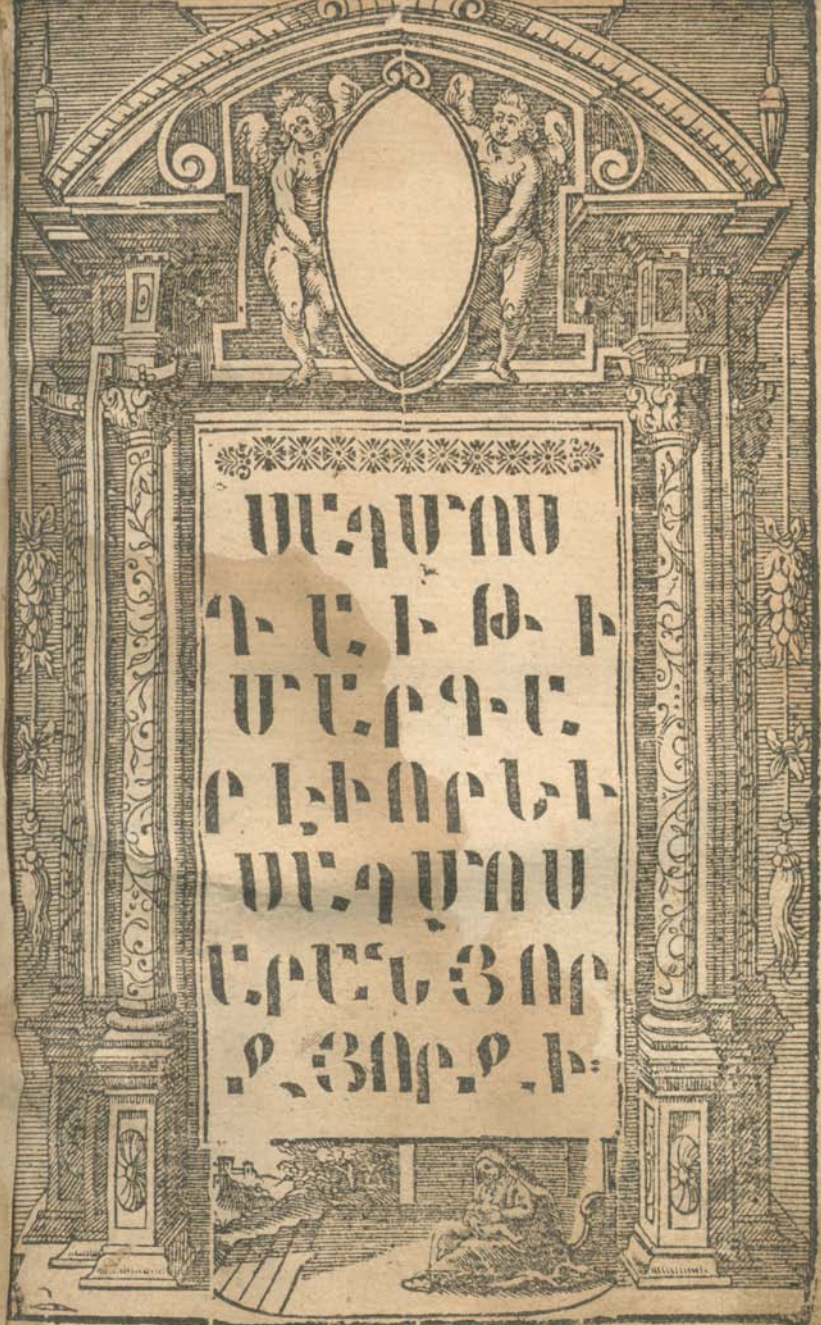 ՍԱՂՄՈՍ
ԴԱՒԹԻ
ՄԱՐԳԱ
ՐԷԻՈՐԵՒ
ՍԱՂՄՈՍ
ԱՐԱՆՅՈՐ
ՋՅՈՐՋԻ։